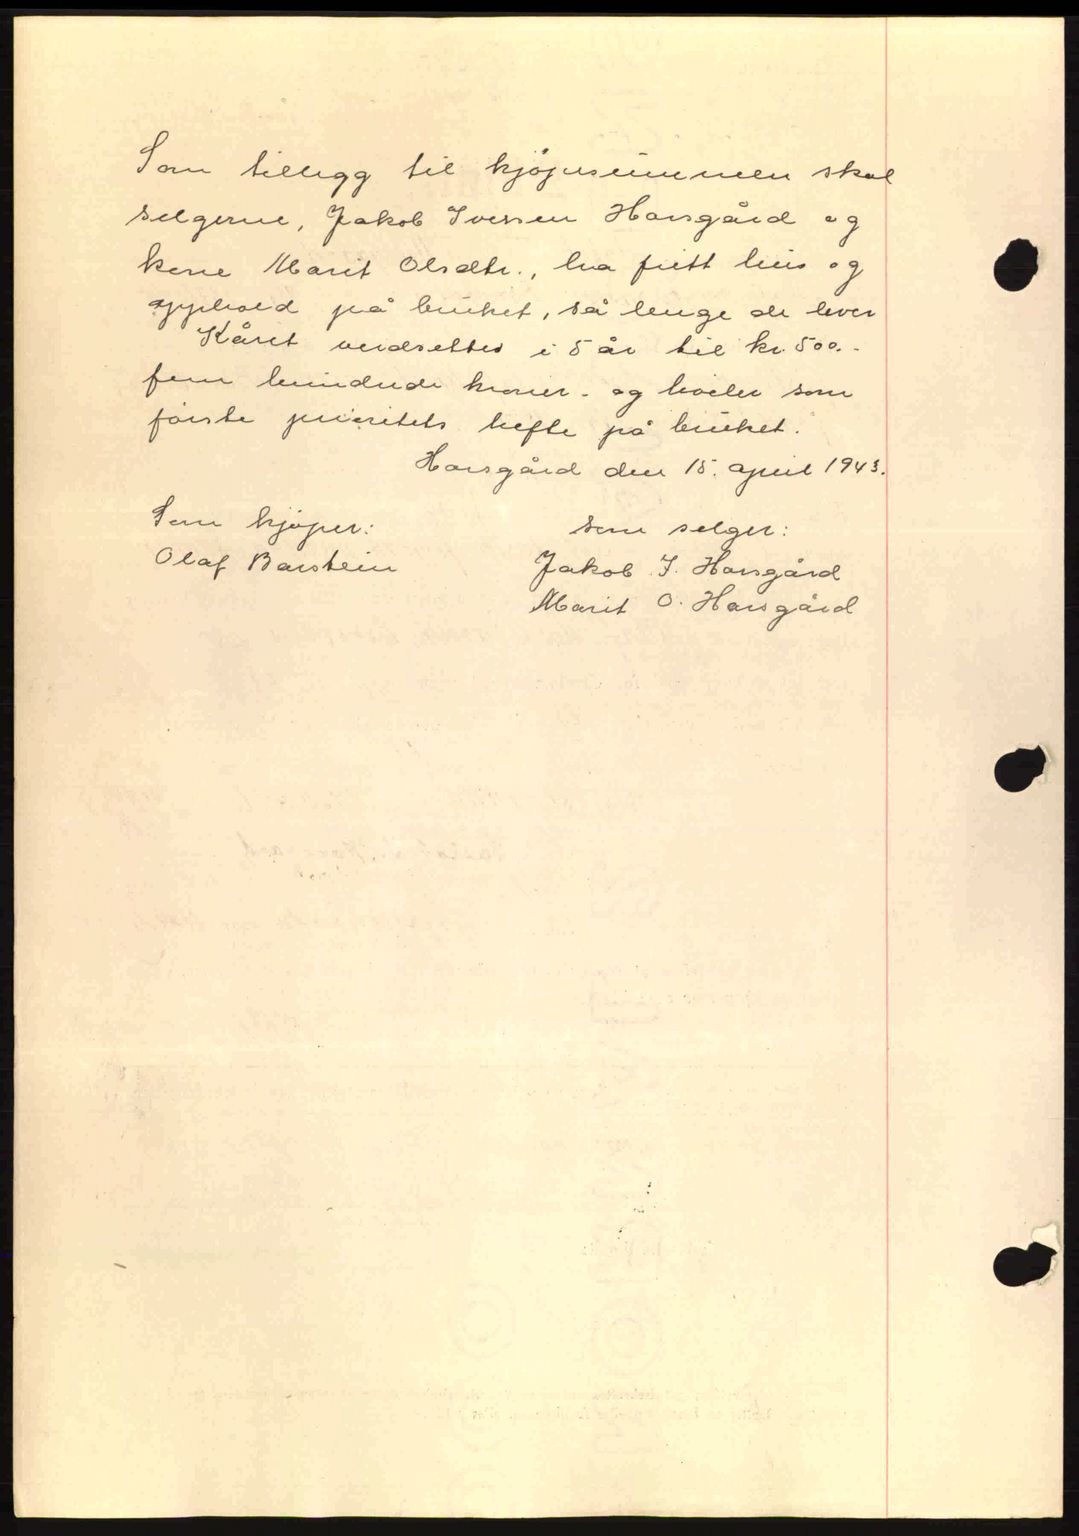 Som tillegg til kjøpesummen skal
selgerne, Jakob Iversen Horsgård og
kone Marit Olsdtr., ha fritt hus og
opphold på bruket, så lenge de lever
Kåret verdsettes i 5 år til kr. 500.-
fem hundrede kroner - og hviler som
første prioritets hefte på bruket.
Horsgård den 15. april 1943.
Som kjøper: som selger:
Olaf Barstein Jakob I. Horsgård
Marit O. Horsgård